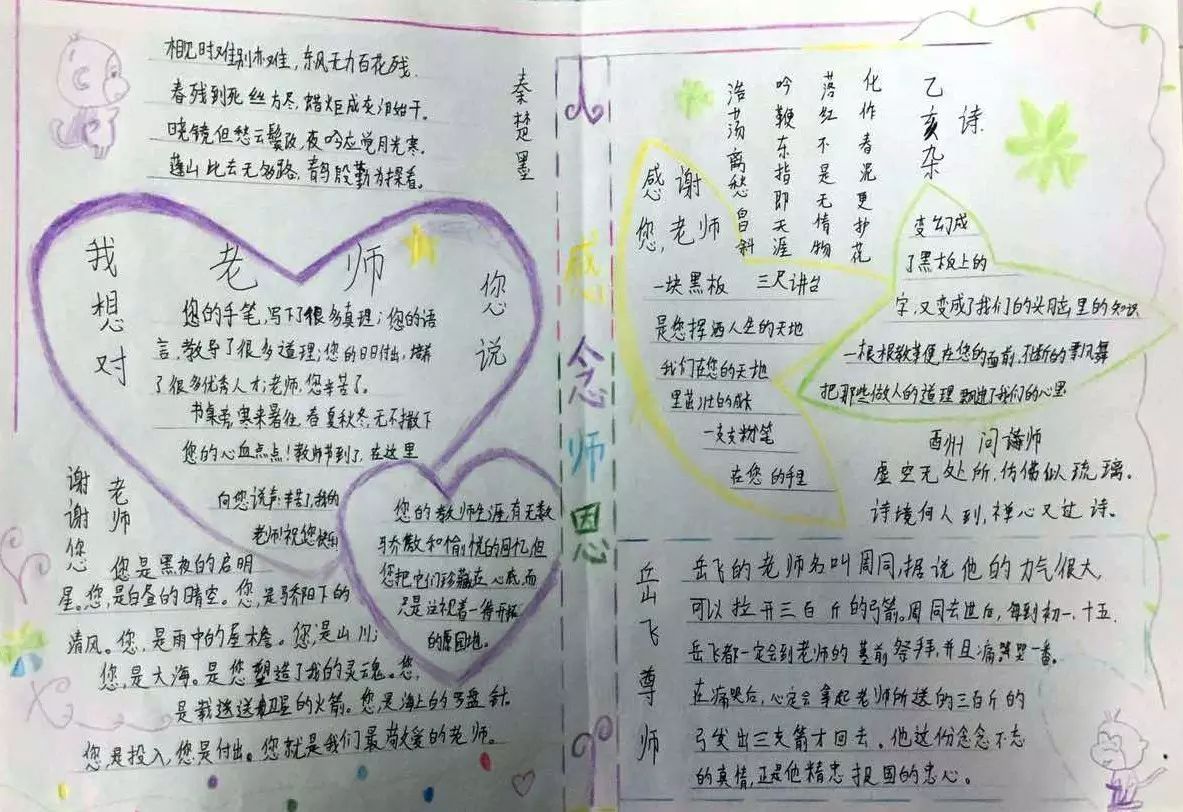 相见时难别亦难，东风无力百花残
春残到死丝方尽，蜡炬成灰泪始干。
晓镜但愁云鬓改，夜吟应觉月光寒。
蓬山此去无多路，青鸟殷勤为探看。
秦楚墨
我想对
老师
您说
您的手笔，写下了很多真理；您的语
言，教导了很多道理；您的日日付出，培养
了很多优秀人才；老师，您辛苦了。
寒来暑往，春夏秋冬，无不撒下
您的心血点点！教师节到了，在这里
向您说声辛苦了，我的
老师！祝您快乐
您的教师生涯，有无数
骄傲和愉悦的回忆，但
您把它们珍藏在心底，而
只是注视着一待开拓
的原园地。
谢谢您
老师
您是黑夜的启明
星。您，是白昼的晴空。您，是骄阳下的
清风。您，是雨中的屋檐。您，是山川；
您，是大海。是您塑造了我的灵魂。您，
是载送卫星的火箭。您是海上的罗盘针。
您，是投入，您是付出。您就是我们最尚爱的老师。
感念师恩
乙亥杂
诗
化作春泥更护花
落红不是无情物
吟鞭东指即天涯
浩荡离愁白日斜
感谢
您，老师
一块黑板 三尺讲台
是您挥洒人生的天地
我们在您的天地
里茁壮的成长
一支支粉笔
在您的手里
变幻成
了黑板上的
字，又变成了我们的头脑里的知识
一根根教鞭在您的面前，不断的飞舞
把那些做人的道理 进了我们的心里
酉州 问诗师
虚空无处所，仿佛似琉璃。
诗境何人到，禅心又过诗。
岳飞尊师
岳飞的老师名叫周同，据说他的力气很大，
可以拉开三百斤的弓箭。周同去世后，每到初一、十五，
岳飞都一定会到老师的墓前祭拜，并且痛哭一番。
在痛哭后，必定会拿起老师所送的三百斤的
弓发出三支箭才回去。他这份念念不忘
的真情，正是他精忠报国的忠心。